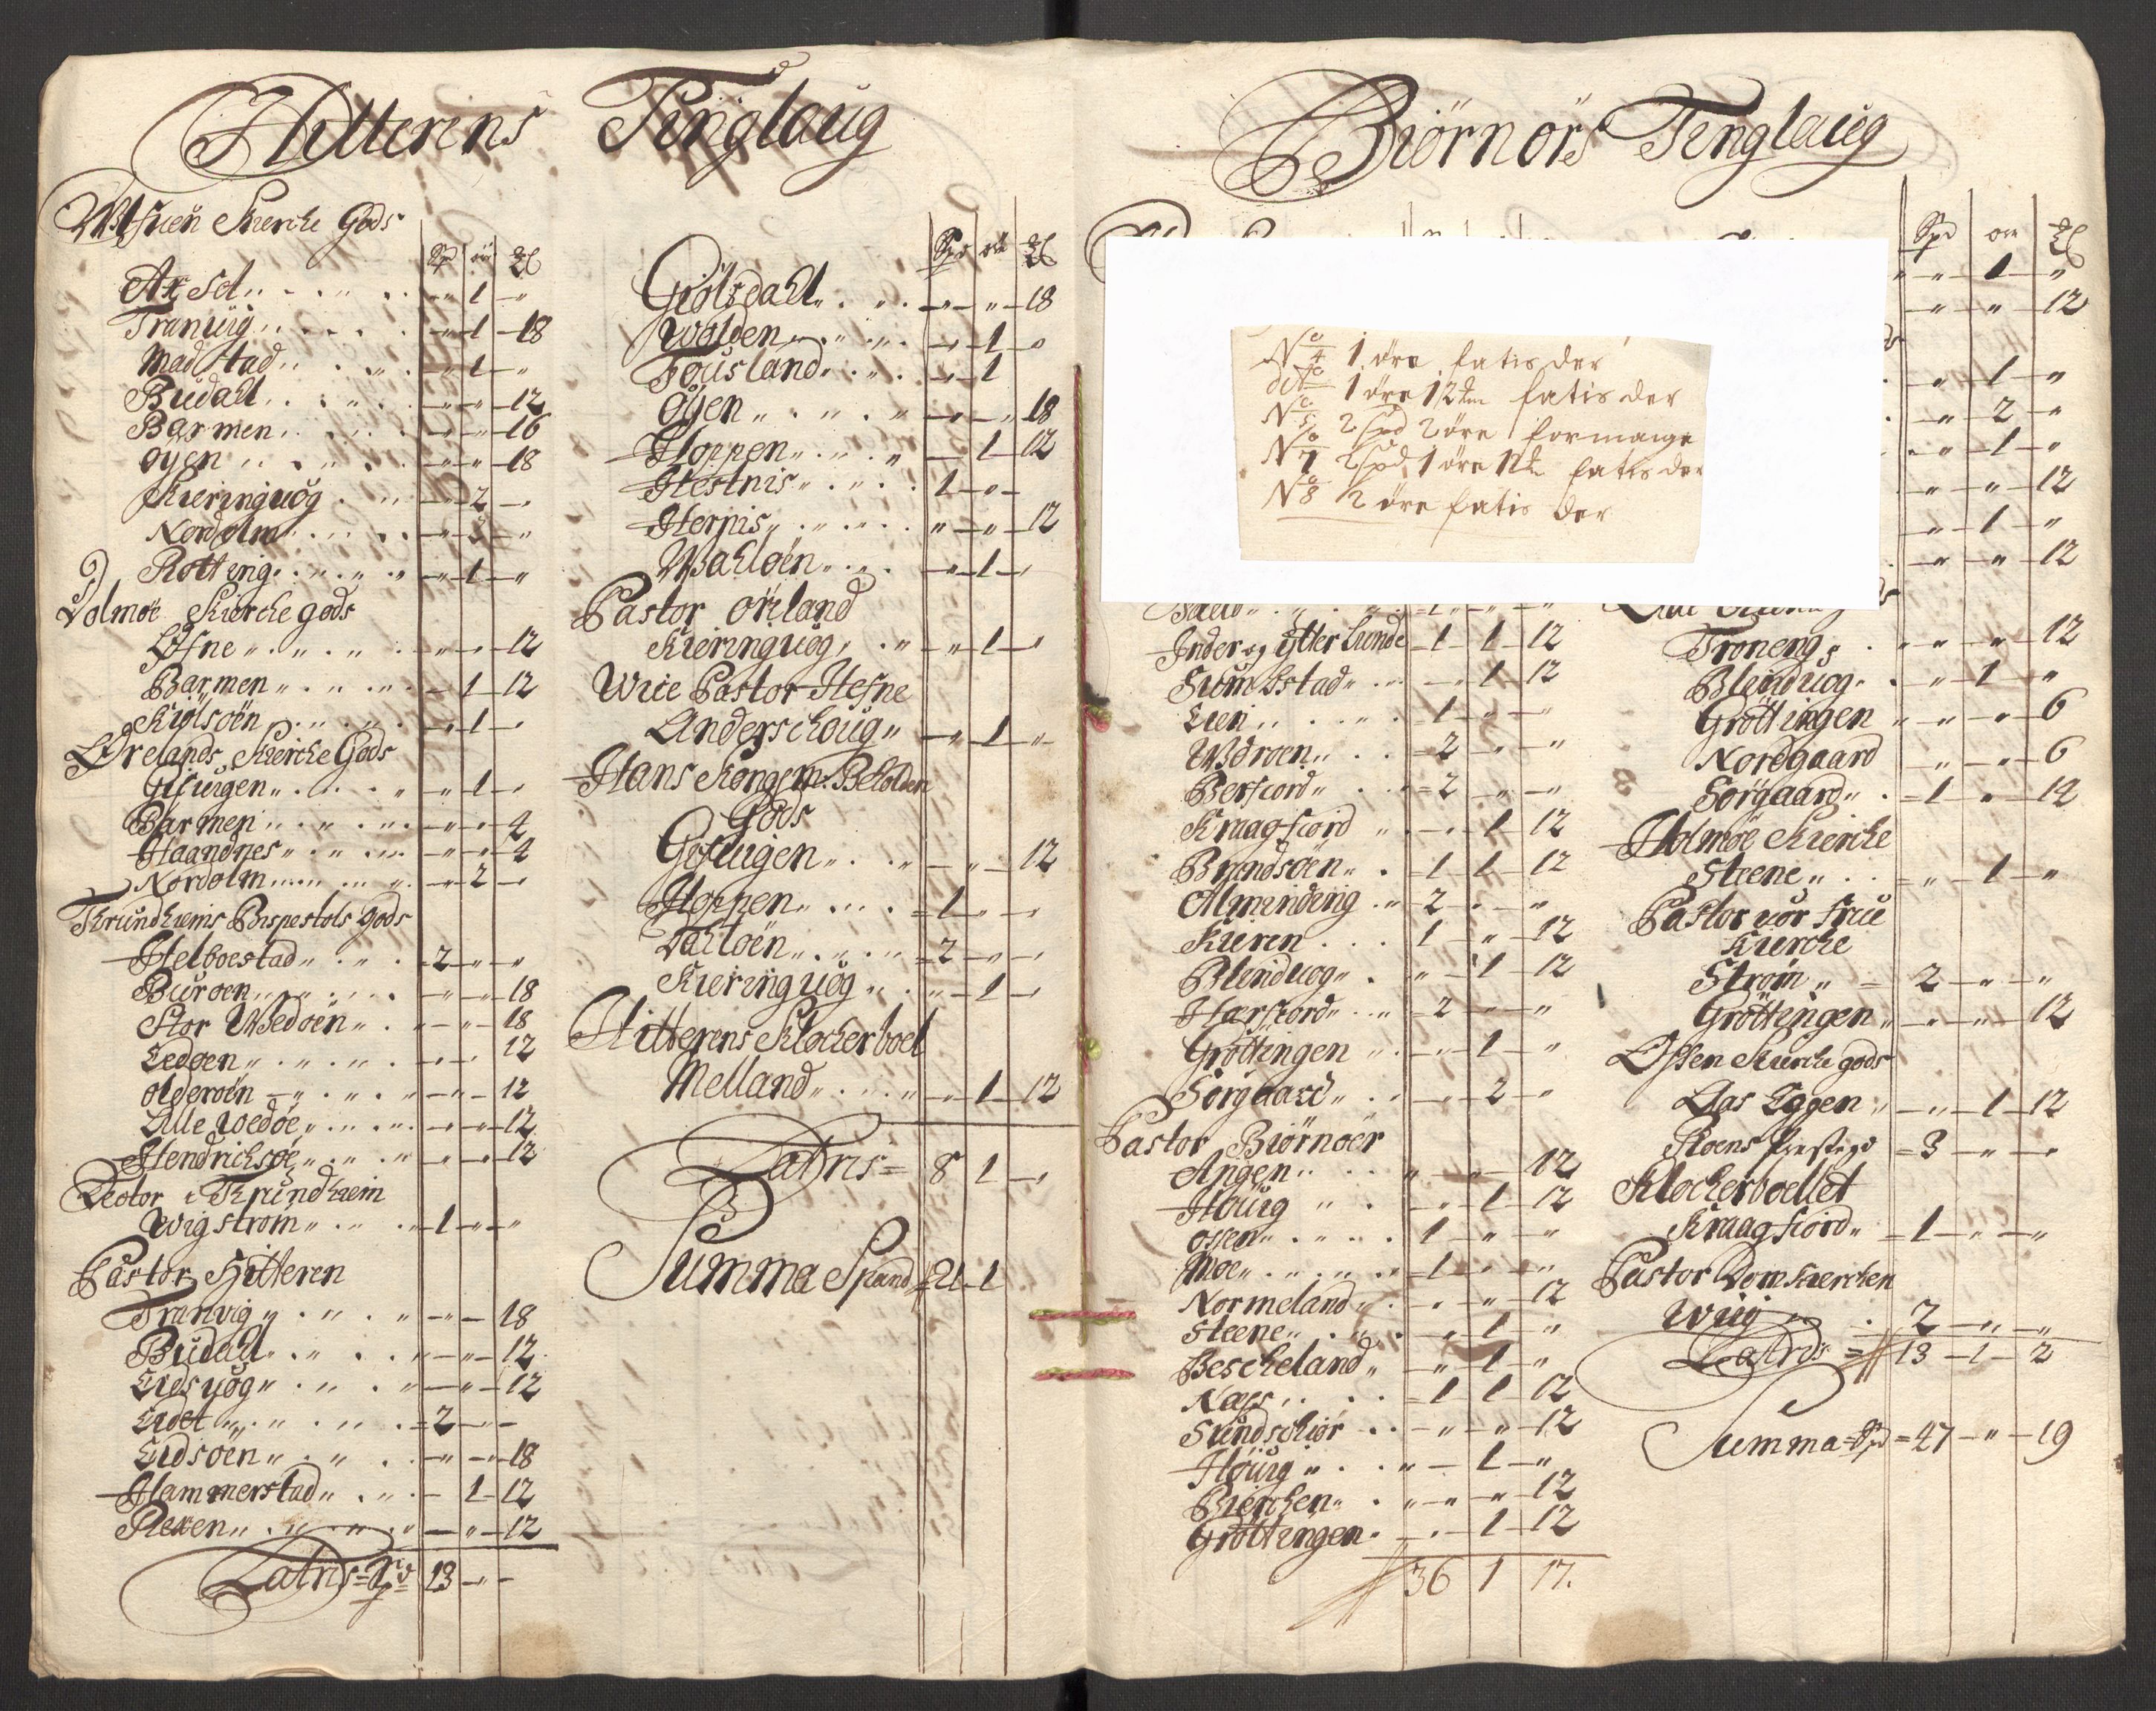 Hitterens Tinglaug
Kierche Gods
Spd øre
Axsel 1
Tranuig 1 18
Madstad 1
Budall 12
Barmen 16
Oyen 18
Kieringuog 2
Nordolm 3
Rotting 1
Dolmøe Kierche gods
Øfne 12
Barmen 1 12
Kiølsøen 1
Ørelands Kierche Gods
Gifuigen 1
Barmen 4
Haandnes 4
Nordolm 2
Thrundhiems Bispestols gods
Helboestad 2
Buroen 18
Stor Wedøen 18
Ledoen 12
Olderøen 12
Lille Wedøe 12
Hendrichsøe 12
Lector i Thrundhiem
Wigstrøm 1
Pastor Hitteren
Tranvig 18
Budall 12
Eidsuog 12
Eidet 2
Eidsøen 18
Hammerstad 1 12
Rexen 12
Latris Spd 13
Spd øre
Giølsdall 18
Wolden 1
Fousland 1
Öyen 18
Hoppen 1 12
Hestnis 1
Hernis 12
Wahløen 1
Pastor Ørland
Kieringuog 1
Wice Pastor Hefne
Anderschoug 1
Hans Kongem: Beholden
Gods
Gifuigen 12
Hoppen 1
Valløen 2
Kieringuog 1
Hitterens Klocherboel
Melland 1 12
Latris 8 1
Summa Spand 21 1
Biørnørs Tinglaug
No 4 1 øre fatis der
dito 1 øre 12 fatis der
No 5 2 spd 2 øre formange
No 7 2 spd 1 øre 12 fatis der
No 8 ½ øre fatis der
Inder og Ytter Lunde 1 1 12
Sumbstad 1 12
Lien 1
Wdroen 2
Berfiord 2
Kraagfiord 1 12
Brandsøen 1 1 12
Alminding 2
Kieren 1 12
Blinduog 1 12
Harfiord 2
Grøttingen 1
Sørgaard 2
Pastor Biørnøer
Angen 12
Houg 1 12
Ossen 1
Moe 1
Normeland 12
Steene 1
Bescheland 1
Næss 1 1 12
Sundschiør 12
Høuig 1
Bierchen 12
Grøttingen 1 12
36 1 17
Spd øre
1
12
1
2
1
12
1
12
Troneng 12
Blinduog 1
Grøttingen 6
Nordgaard 6
Sørgaard 1 12
Holmøe Kierche
Steene 1
Pastor vor Frue
Kierche
Strøm 2
Grøttingen 12
Ossen Kierche gods
Aas Eggen 1 12
Roens Prestegd 3
Klocherboellet
Kraagfiord 1
Pastor Domkierchen
Wiig 2
Latris 13 1 2
Summa Spd 47 19